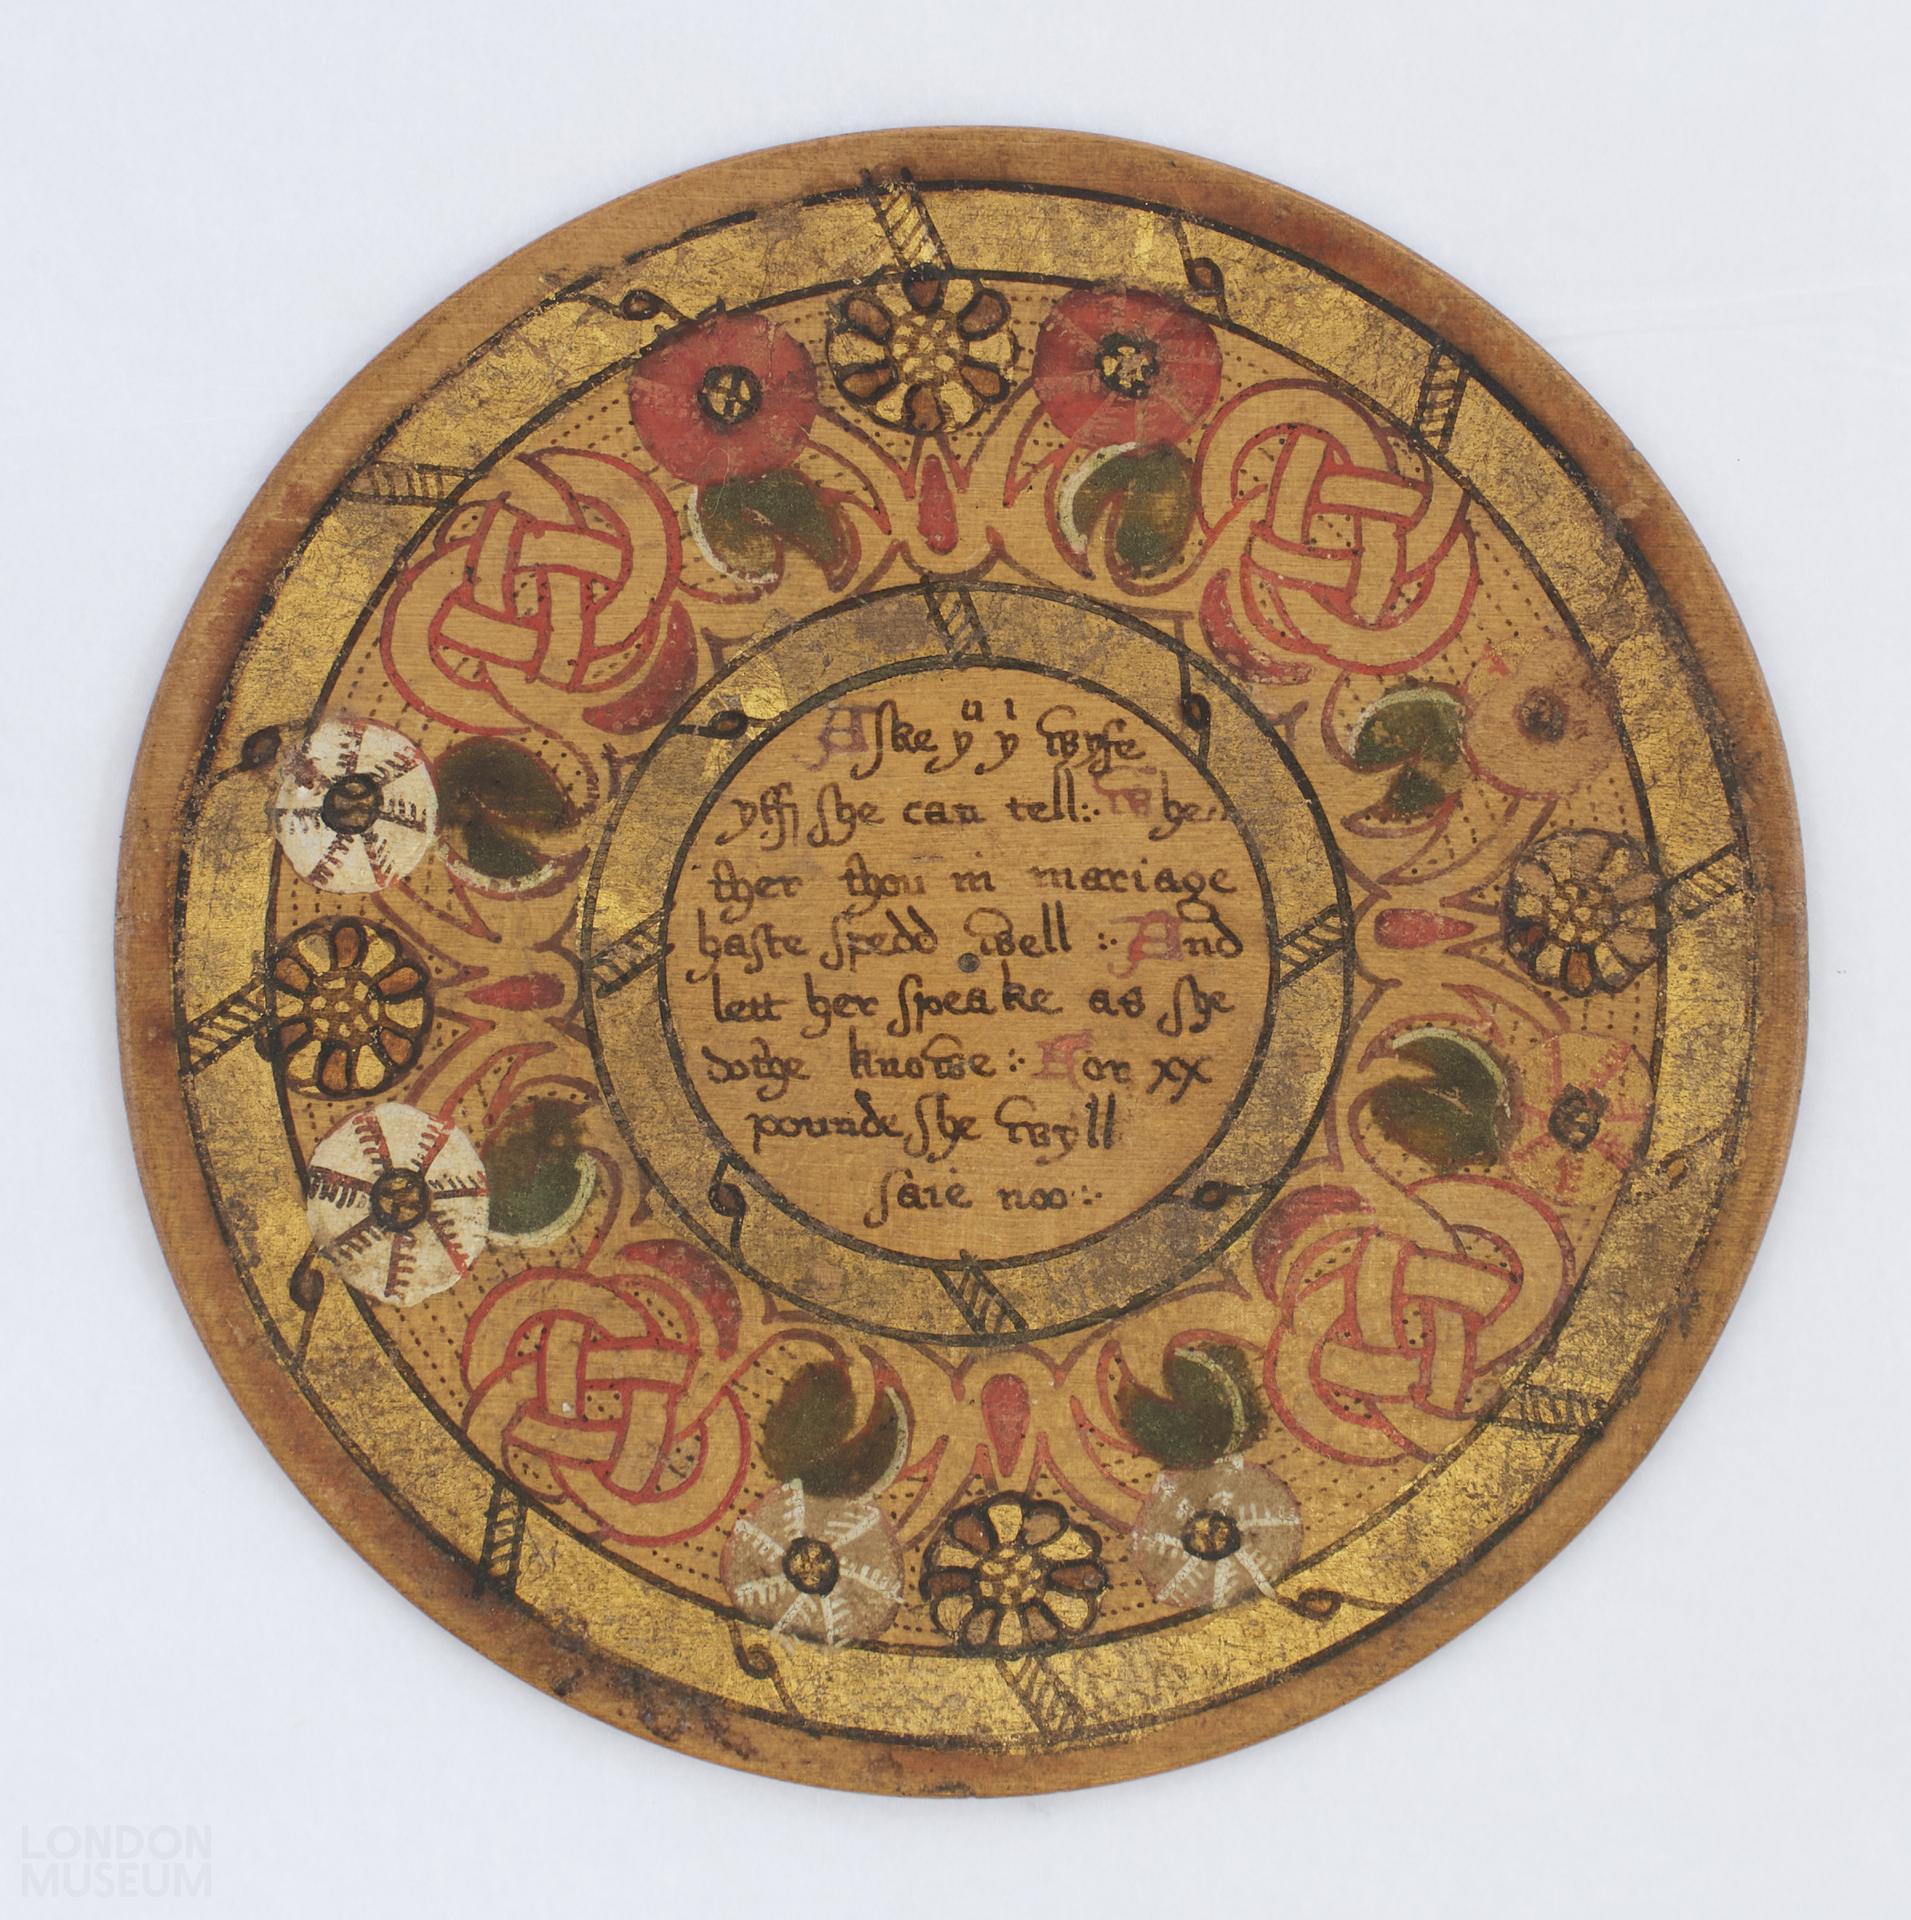 Aske yͧ yͥ wyfe
yff she can tell :· Whe
ther thou in mariage
haste spedd well :· And
lett her speake as she
dothe knowe :· For xx
pounde she wyll
saie noo :·
LONDON
MUSEUM